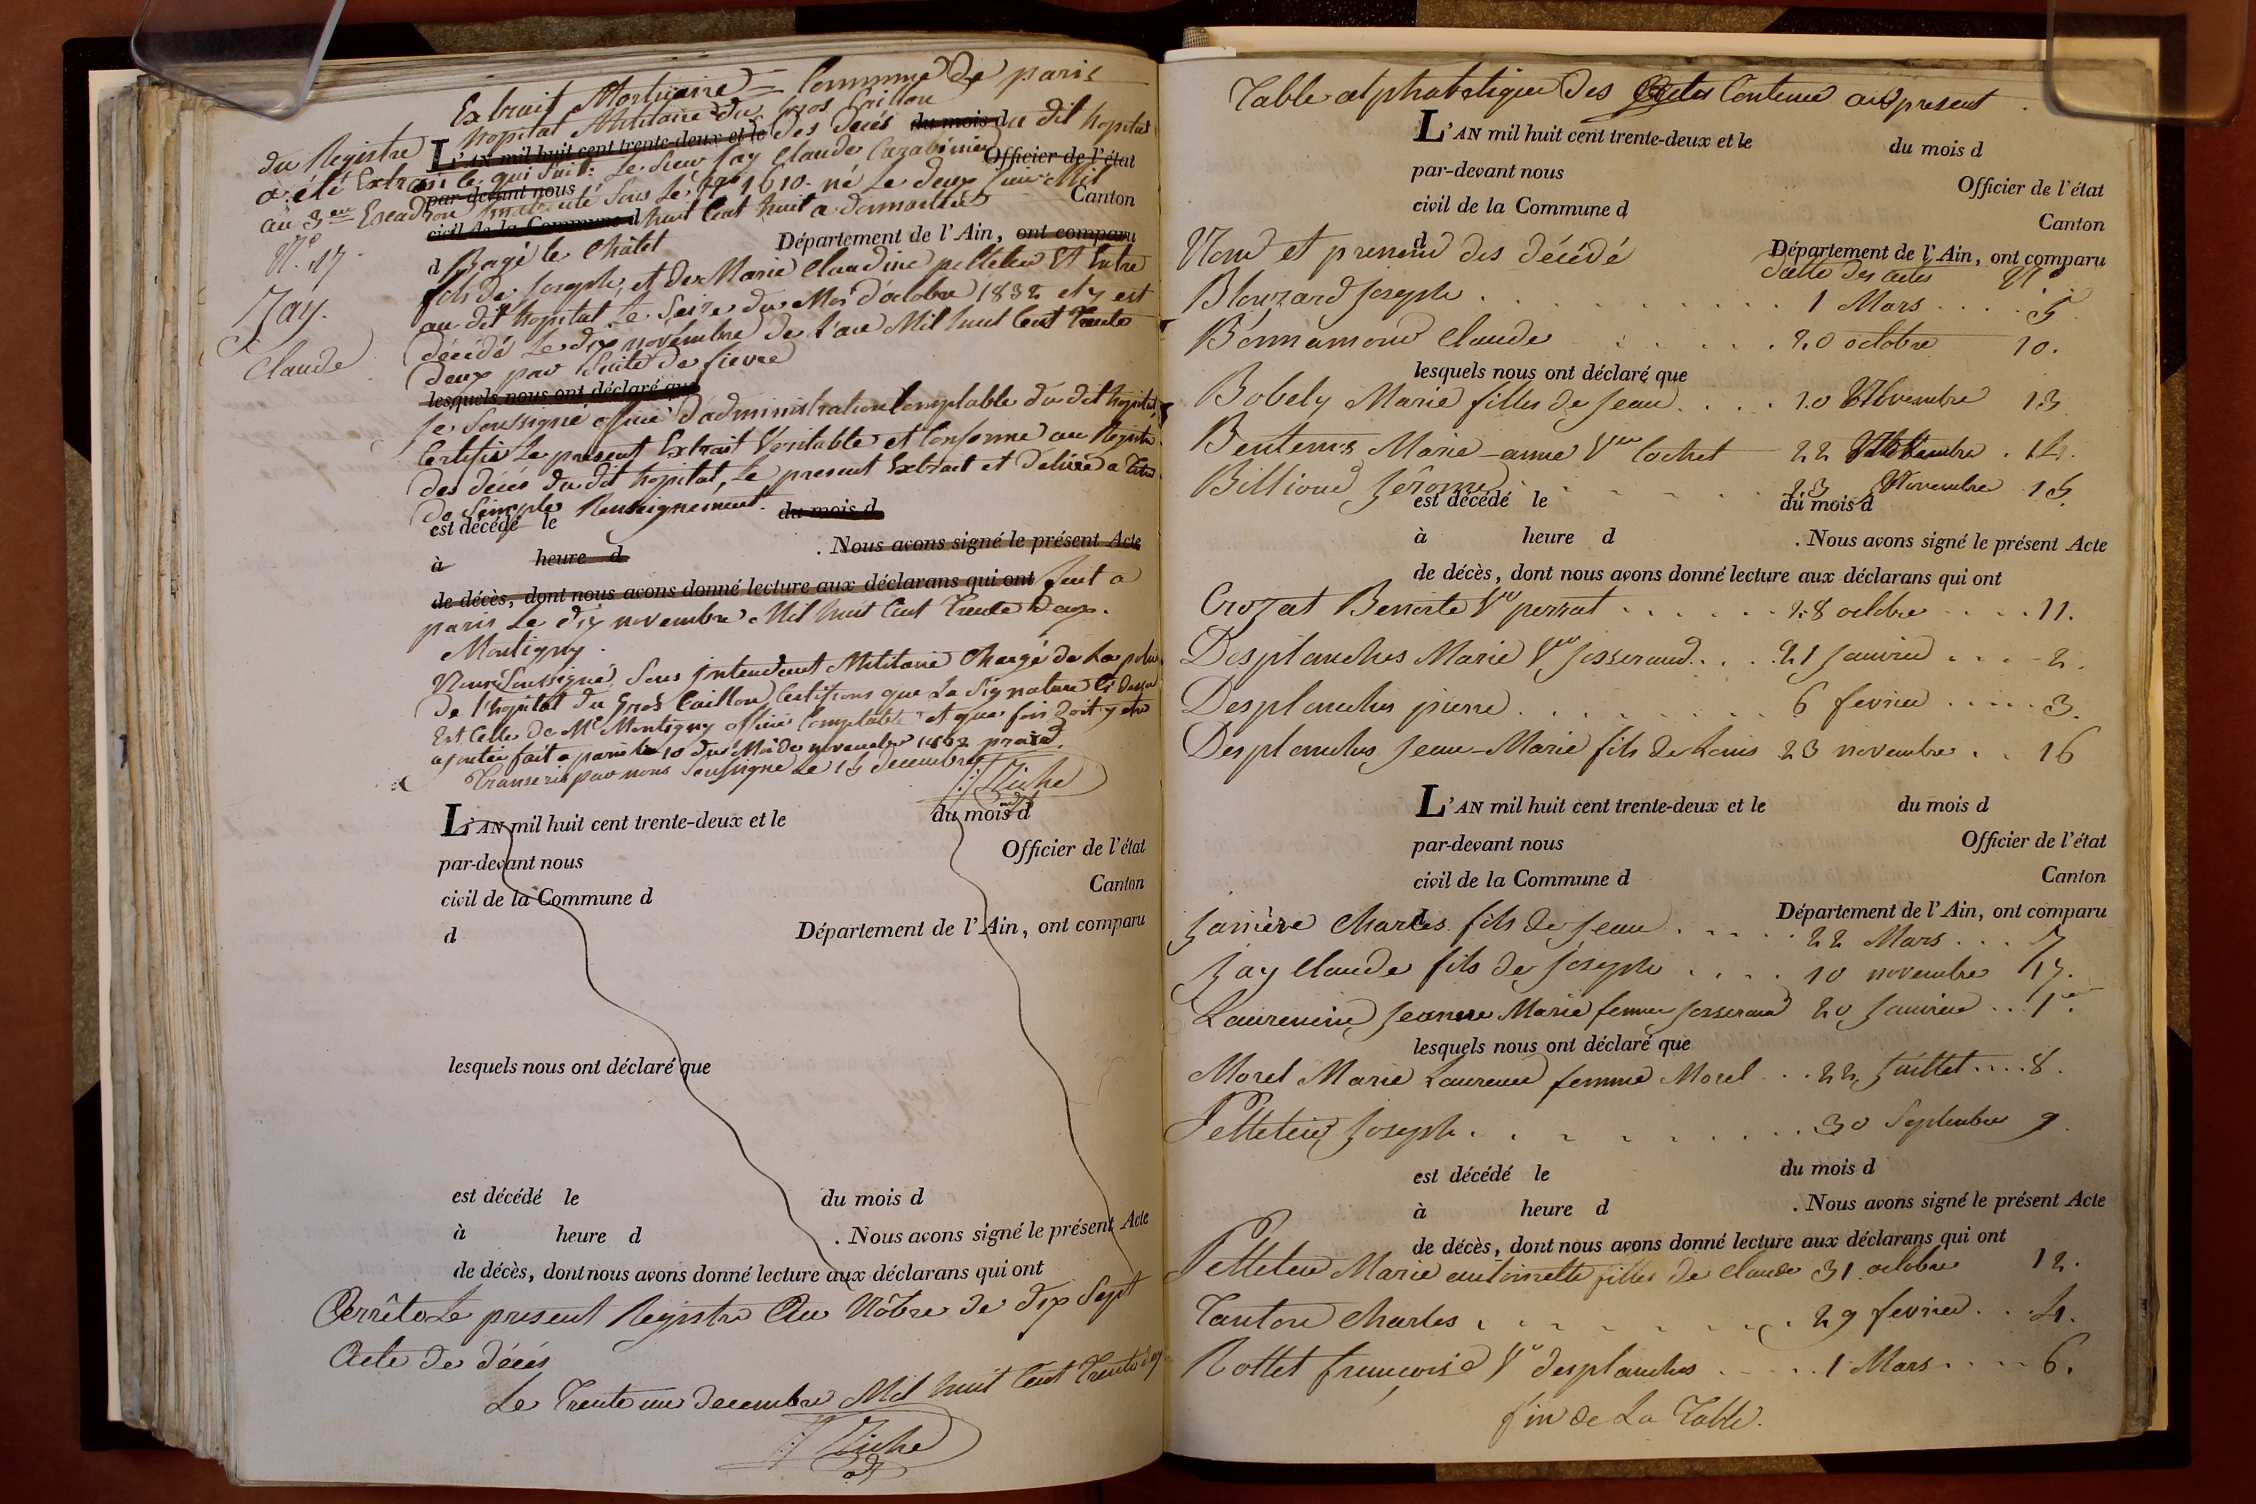 Extrait Mortuaire = Commune de paris
hopital Militaire du Gros Caillou
du Registre
L'AN mil huit cent trente-deux et le
des décés
du mois d
du dit hopital
a été Extrais ce qui suit: Le Sieur Jay Claude Carabinier
Officier de l'état
par-devant nous
au 3me Escadron immatriculé sous le No 1610. né le deux Mil
Canton
civil de la Commune d
huit Cent huit a
No. 17
d Bagé le Châtel
Département de l'Ain, ont comparu
fils de Joseph, et de Marie Claudine pelletier Et Entré
Jay.
Claude
au dit hopital Le Seize du Mois d'octobre 1832 et y est
décédé Le dix novembre de l'an Mil huit Cent Trente
deux par Suite de fievre
lesquels nous ont déclaré que
Je Soussigné officier d'administration Comptable du dit hopital
Certifie Le present Extrait Veritable et Conforme au Registre
des décés du dit hopital, Le present Extrait et delivré a Titre
de Simple Renseignement.
est décédé le
du mois d
à heure d
. Nous avons signé le présent Acte
de décès, dont nous avons donné lecture aux déclarans qui ont
fait a
paris Le dix novembre Mil huit Cent Trente Deux.
Montigny.
Nous Soussigné Sous intendent Militaire Chargé de La police
de l'hopital du Gros Caillou Certifions que La Signature Ci dessus
Est Celle de Mr Montigny officier Comptable et que foi doit y etre
ajoutée fait a paris le 10 du Mois de novembre 1832
Transcris par nous Soussigné Le 15 decembre
L'AN mil huit cent trente-deux et le
du mois d
par-devant nous
Officier de l'état
civil de la Commune d
Canton
d
Département de l'Ain, ont comparu
lesquels nous ont déclaré que
est décédé le
du mois d
à heure d
. Nous avons signé le présent Acte
de décès, dont nous avons donné lecture aux déclarans qui ont
Arrêté Le present Registre Au Nôbre de dix Sept
Acte de décés
Le Trente un decembre Mil huit Cent Trente deux
Table alphabetique des Actes Contenu au present.
L'AN mil huit cent trente-deux et le
du mois d
par-devant nous
Officier de l'état
civil de la Commune d
Canton
d
Département de l'Ain, ont comparu
Nom et prenom des décédé
datte des actes
No
Blouzard Joseph . . . . . 1 Mars . . . . 5
Bonnamour Claude . . . . . 20 octobre 10.
lesquels nous ont déclaré que
Bobely Marie fille de Jean . . . . 10 Novembre 13
Bentems Marie-anne Vve Cochet 22 Novembre . 14.
Billioud Jérome . . . . . 23 Novembre 15
est décédé le
du mois d
à heure d
. Nous avons signé le présent Acte
de décès, dont nous avons donné lecture aux déclarans qui ont
Crozat Benoite Vve perrat . . . . . 28 octobre . . . . 11.
Desplanches Marie Vve Josserand . . . . 21 Janvier . . . . 2.
Desplanches pierre . . . . . 6 fevrier . . . . . 3.
Desplanches Jean-Marie fils de Louis 23 novembre . . 16
L'AN mil huit cent trente-deux et le
du mois d
par-devant nous
Officier de l'état
civil de la Commune d
Canton
d
Département de l'Ain, ont comparu
Janière Charles fils de Jean . . . . . 22 Mars . . . 7
Jay Claude fils de Joseph . . . . 10 novembre 17.
Laurencin Jeanne Marie femme Josserand 20 Janvier . . 1er
lesquels nous ont déclaré que
Morel Marie Laurence femme Morel . . 22 Juillet . . . . 8.
Pelletier Joseph . . . . . 30 Septembre 9.
est décédé le
du mois d
à heure d
. Nous avons signé le présent Acte
de décès, dont nous avons donné lecture aux déclarans qui ont
Pelletier Marie antoinette fille de Claude 31 octobre 12.
Tanton Charles . . . . . 29 fevrier . . . 4.
Rollet françoise Vve desplanches . . . . 1 Mars . . . . 6.
fin de La Table.